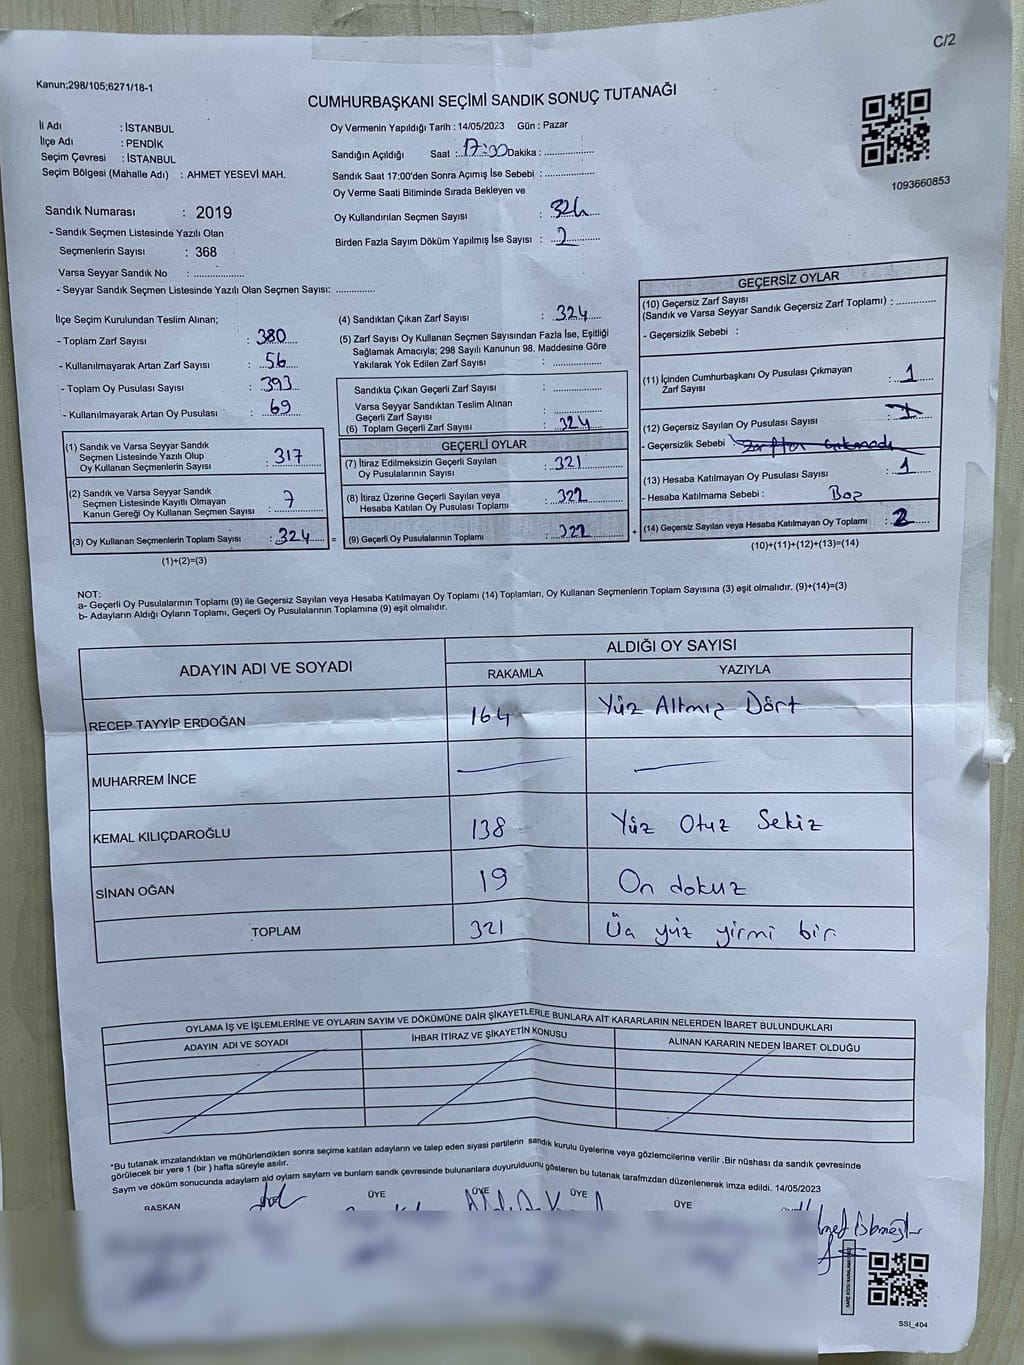 C/2
Kanun;298/105;6271/18-1
CUMHURBAŞKANI SEÇİMİ SANDIK SONUÇ TUTANAĞI
1093660853
İl Adı : İSTANBUL
İlçe Adı : PENDİK
Seçim Çevresi : İSTANBUL
Seçim Bölgesi (Mahalle Adı) : AHMET YESEVİ MAH.
Sandık Numarası : 2019
- Sandık Seçmen Listesinde Yazılı Olan
Seçmenlerin Sayısı : 368
Varsa Seyyar Sandık No : ..................
- Seyyar Sandık Seçmen Listesinde Yazılı Olan Seçmen Sayısı: ..............
Oy Vermenin Yapıldığı Tarih : 14/05/2023 Gün : Pazar
Sandığın Açıldığı Saat : 17:00 Dakika : ..................
Sandık Saat 17:00'den Sonra Açımış İse Sebebi : ..................
Oy Verme Saati Bitiminde Sırada Bekleyen ve
Oy Kullandırılan Seçmen Sayısı : 324
Birden Fazla Sayım Döküm Yapılmış İse Sayısı : 2
İlçe Seçim Kurulundan Teslim Alınan;
- Toplam Zarf Sayısı : 380
- Kullanılmayarak Artan Zarf Sayısı : 56
- Toplam Oy Pusulası Sayısı : 393
- Kullanılmayarak Artan Oy Pusulası : 69
(1) Sandık ve Varsa Seyyar Sandık
Seçmen Listesinde Yazılı Olup
Oy Kullanan Seçmenlerin Sayısı : 317
(2) Sandık ve Varsa Seyyar Sandık
Seçmen Listesinde Kayıtlı Olmayan
Kanun Gereği Oy Kullanan Seçmen Sayısı : 7
(3) Oy Kullanan Seçmenlerin Toplam Sayısı : 324 =
(1)+(2)=(3)
(4) Sandıktan Çıkan Zarf Sayısı : 324
(5) Zarf Sayısı Oy Kullanan Seçmen Sayısından Fazla İse, Eşitliği
Sağlamak Amacıyla; 298 Sayılı Kanunun 98. Maddesine Göre
Yakılarak Yok Edilen Zarf Sayısı : ..................
Sandıkta Çıkan Geçerli Zarf Sayısı : ..................
Varsa Seyyar Sandıktan Teslim Alınan
Geçerli Zarf Sayısı : ..................
(6) Toplam Geçerli Zarf Sayısı : 324
GEÇERLİ OYLAR
(7) İtiraz Edilmeksizin Geçerli Sayılan
Oy Pusulalarının Sayısı : 321
(8) İtiraz Üzerine Geçerli Sayılan veya
Hesaba Katılan Oy Pusulası Toplamı : 322
(9) Geçerli Oy Pusulalarının Toplamı : 322 +
GEÇERSİZ OYLAR
(10) Geçersiz Zarf Sayısı
(Sandık ve Varsa Seyyar Sandık Geçersiz Zarf Toplamı) : ..............
- Geçersizlik Sebebi :
(11) İçinden Cumhurbaşkanı Oy Pusulası Çıkmayan
Zarf Sayısı : 1
(12) Geçersiz Sayılan Oy Pusulası Sayısı : 1
- Geçersizlik Sebebi : Zarftan Çıkmadı
(13) Hesaba Katılmayan Oy Pusulası Sayısı : 1
- Hesaba Katılmama Sebebi : Boş
(14) Geçersiz Sayılan veya Hesaba Katılmayan Oy Toplamı : 2
(10)+(11)+(12)+(13)=(14)
NOT:
a- Geçerli Oy Pusulalarının Toplamı (9) ile Geçersiz Sayılan veya Hesaba Katılmayan Oy Toplamı (14) Toplamları, Oy Kullanan Seçmenlerin Toplam Sayısına (3) eşit olmalıdır. (9)+(14)=(3)
b- Adayların Aldığı Oyların Toplamı, Geçerli Oy Pusulalarının Toplamına (9) eşit olmalıdır.
ADAYIN ADI VE SOYADI
ALDIĞI OY SAYISI
RAKAMLA YAZIYLA
RECEP TAYYİP ERDOĞAN 164 Yüz Altmış Dört
MUHARREM İNCE
KEMAL KILIÇDAROĞLU 138 Yüz Otuz Sekiz
SİNAN OĞAN 19 On dokuz
TOPLAM 321 Üç yüz yirmi bir
OYLAMA İŞ VE İŞLEMLERİNE VE OYLARIN SAYIM VE DÖKÜMÜNE DAİR ŞİKAYETLERLE BUNLARA AİT KARARLARIN NELERDEN İBARET BULUNDUKLARI
ADAYIN ADI VE SOYADI İHBAR İTİRAZ VE ŞİKAYETİN KONUSU ALINAN KARARIN NEDEN İBARET OLDUĞU
*Bu tutanak imzalandıktan ve mühürlendikten sonra seçime katılan adayların ve talep eden siyasi partilerin sandık kurulu üyelerine veya gözlemcilerine verilir .Bir nüshası da sandık çevresinde
görülecek bir yere 1 (bir ) hafta süreyle asılır.
Sayım ve döküm sonucunda adayların ald oyların sayları ve bunların sandk çevresinde bulunanlara duyurulduunu gösteren bu tutanak tarafmzdan düzenlenerek imza edildi. 14/05/2023
BAŞKAN ÜYE ÜYE ÜYE ÜYE
SSI_404